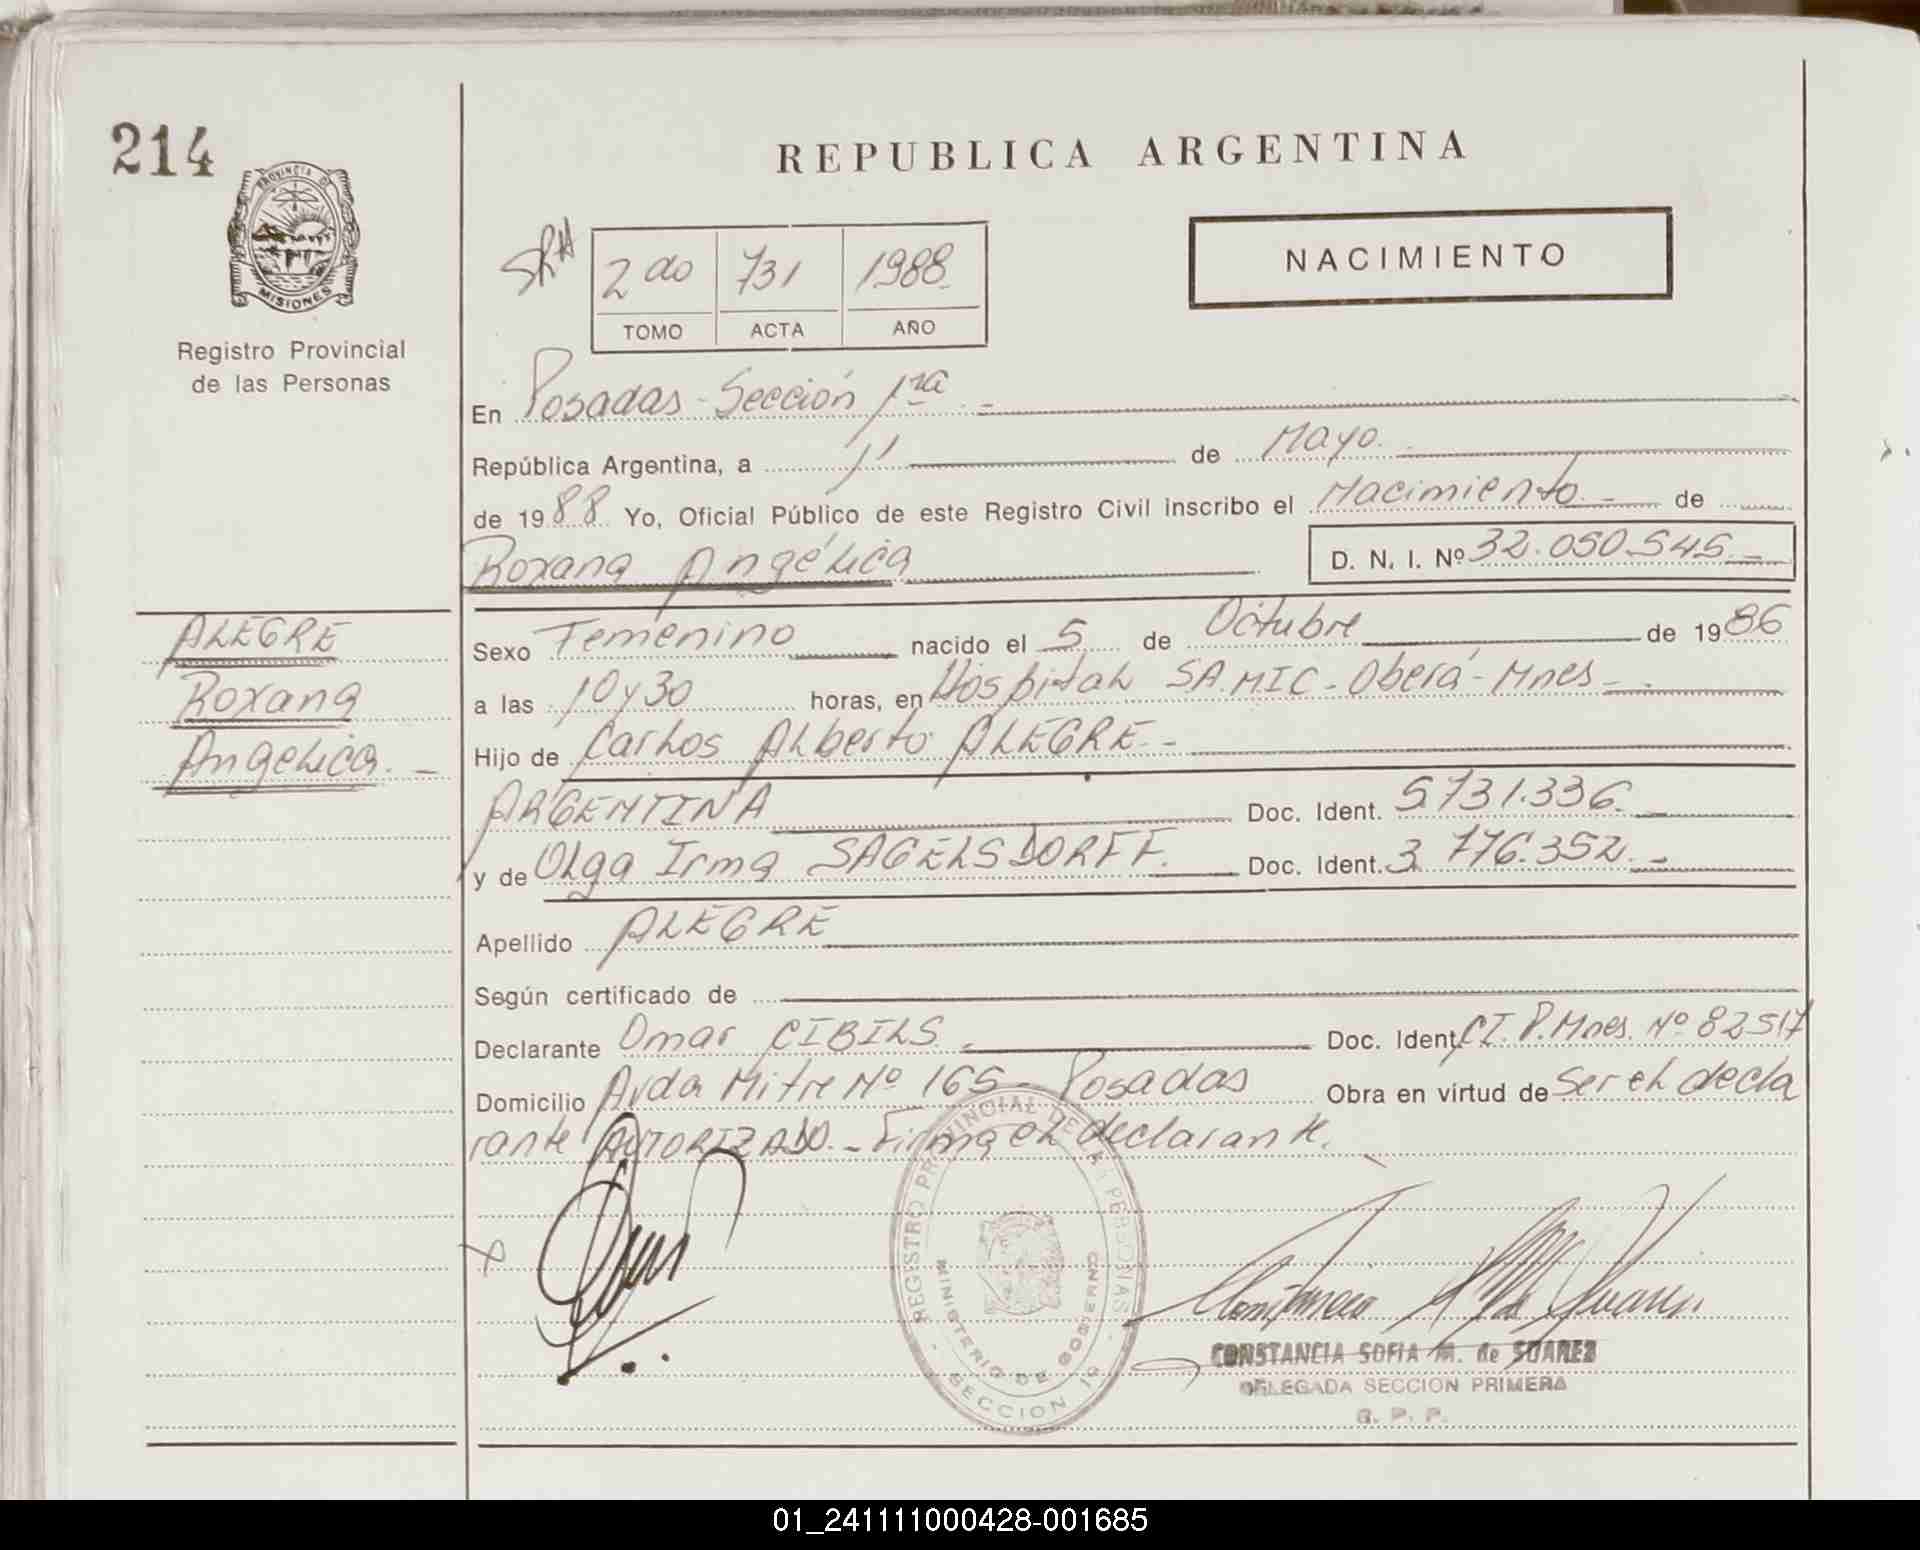 214
REPUBLICA ARGENTINA
PROVINCIA DE
MISIONES
Registro Provincial
de las Personas
2do 731 1988
TOMO ACTA AÑO
NACIMIENTO
En Posadas - Sección 1ra -
República Argentina, a 11 de Mayo.
de 1988 Yo, Oficial Público de este Registro Civil inscribo el Nacimiento - de
Roxana Angélica D. N. I. Nº 32.050.545 -
ALEGRE
Roxana
Angelica. -
Sexo Femenino nacido el 5 de Octubre de 1986
a las 10 y 30 horas, en Hospital SA.MIC - Oberá - Mnes - .
Hijo de Carlos Alberto ALEGRE. -
ARGENTINA Doc. Ident. 5.731.336. -
y de Olga Irma SAGELSDORFF. Doc. Ident. 3.776.352. -
Apellido ALEGRE
Según certificado de
Declarante Omar CIBILS - Doc. Ident. CI. P. Mnes. Nº 82517
Domicilio Avda Mitre Nº 165 - Posadas Obra en virtud de Ser el decla
rante AUTORIZADO. - Firma el declarante.
REGISTRO PROVINCIAL DE LAS PERSONAS
MINISTERIO DE GOBIERNO
SECCION 1ª
CONSTANCIA SOFIA M. de SUAREZ
DELEGADA SECCION PRIMERA
R. P. P.
01_241111000428-001685